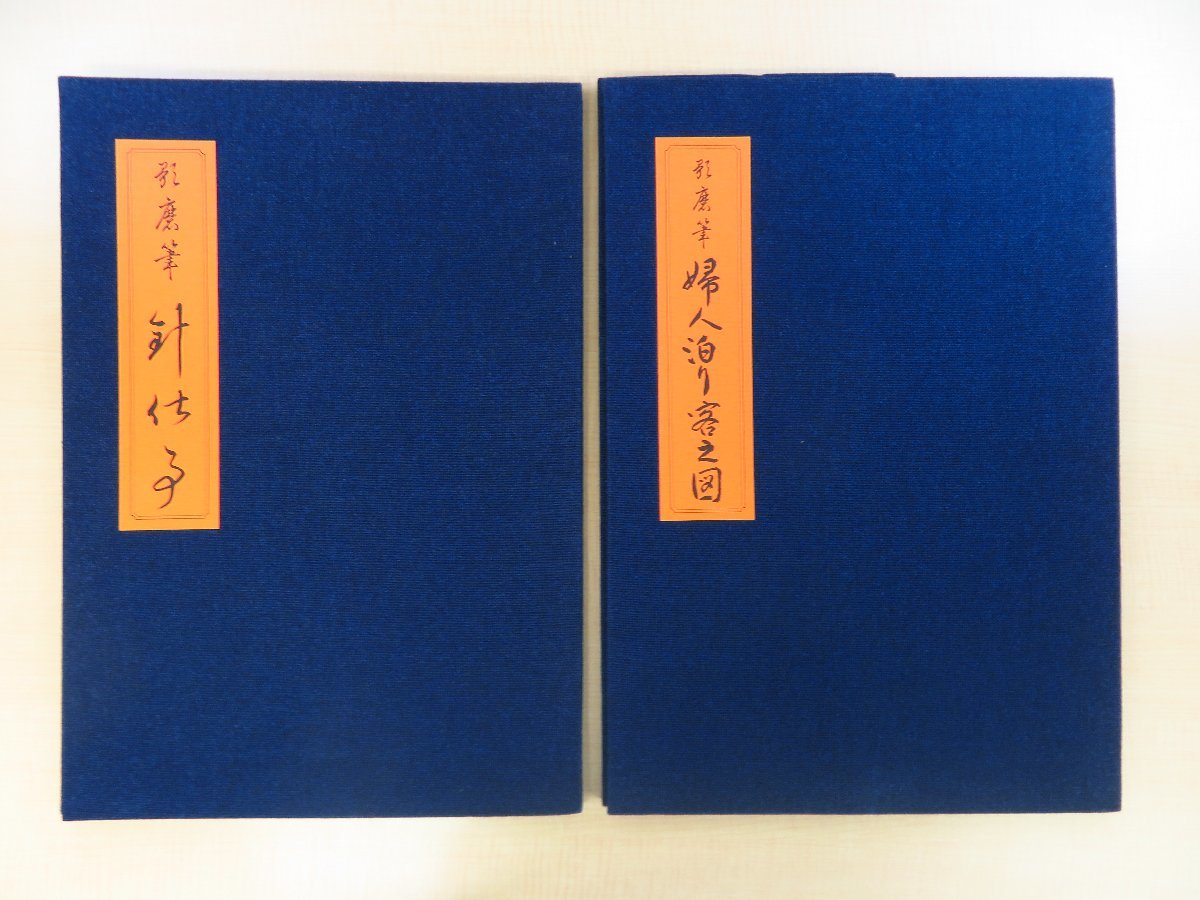 歌麿筆 針仕事
歌麿筆 婦人泊り客之図